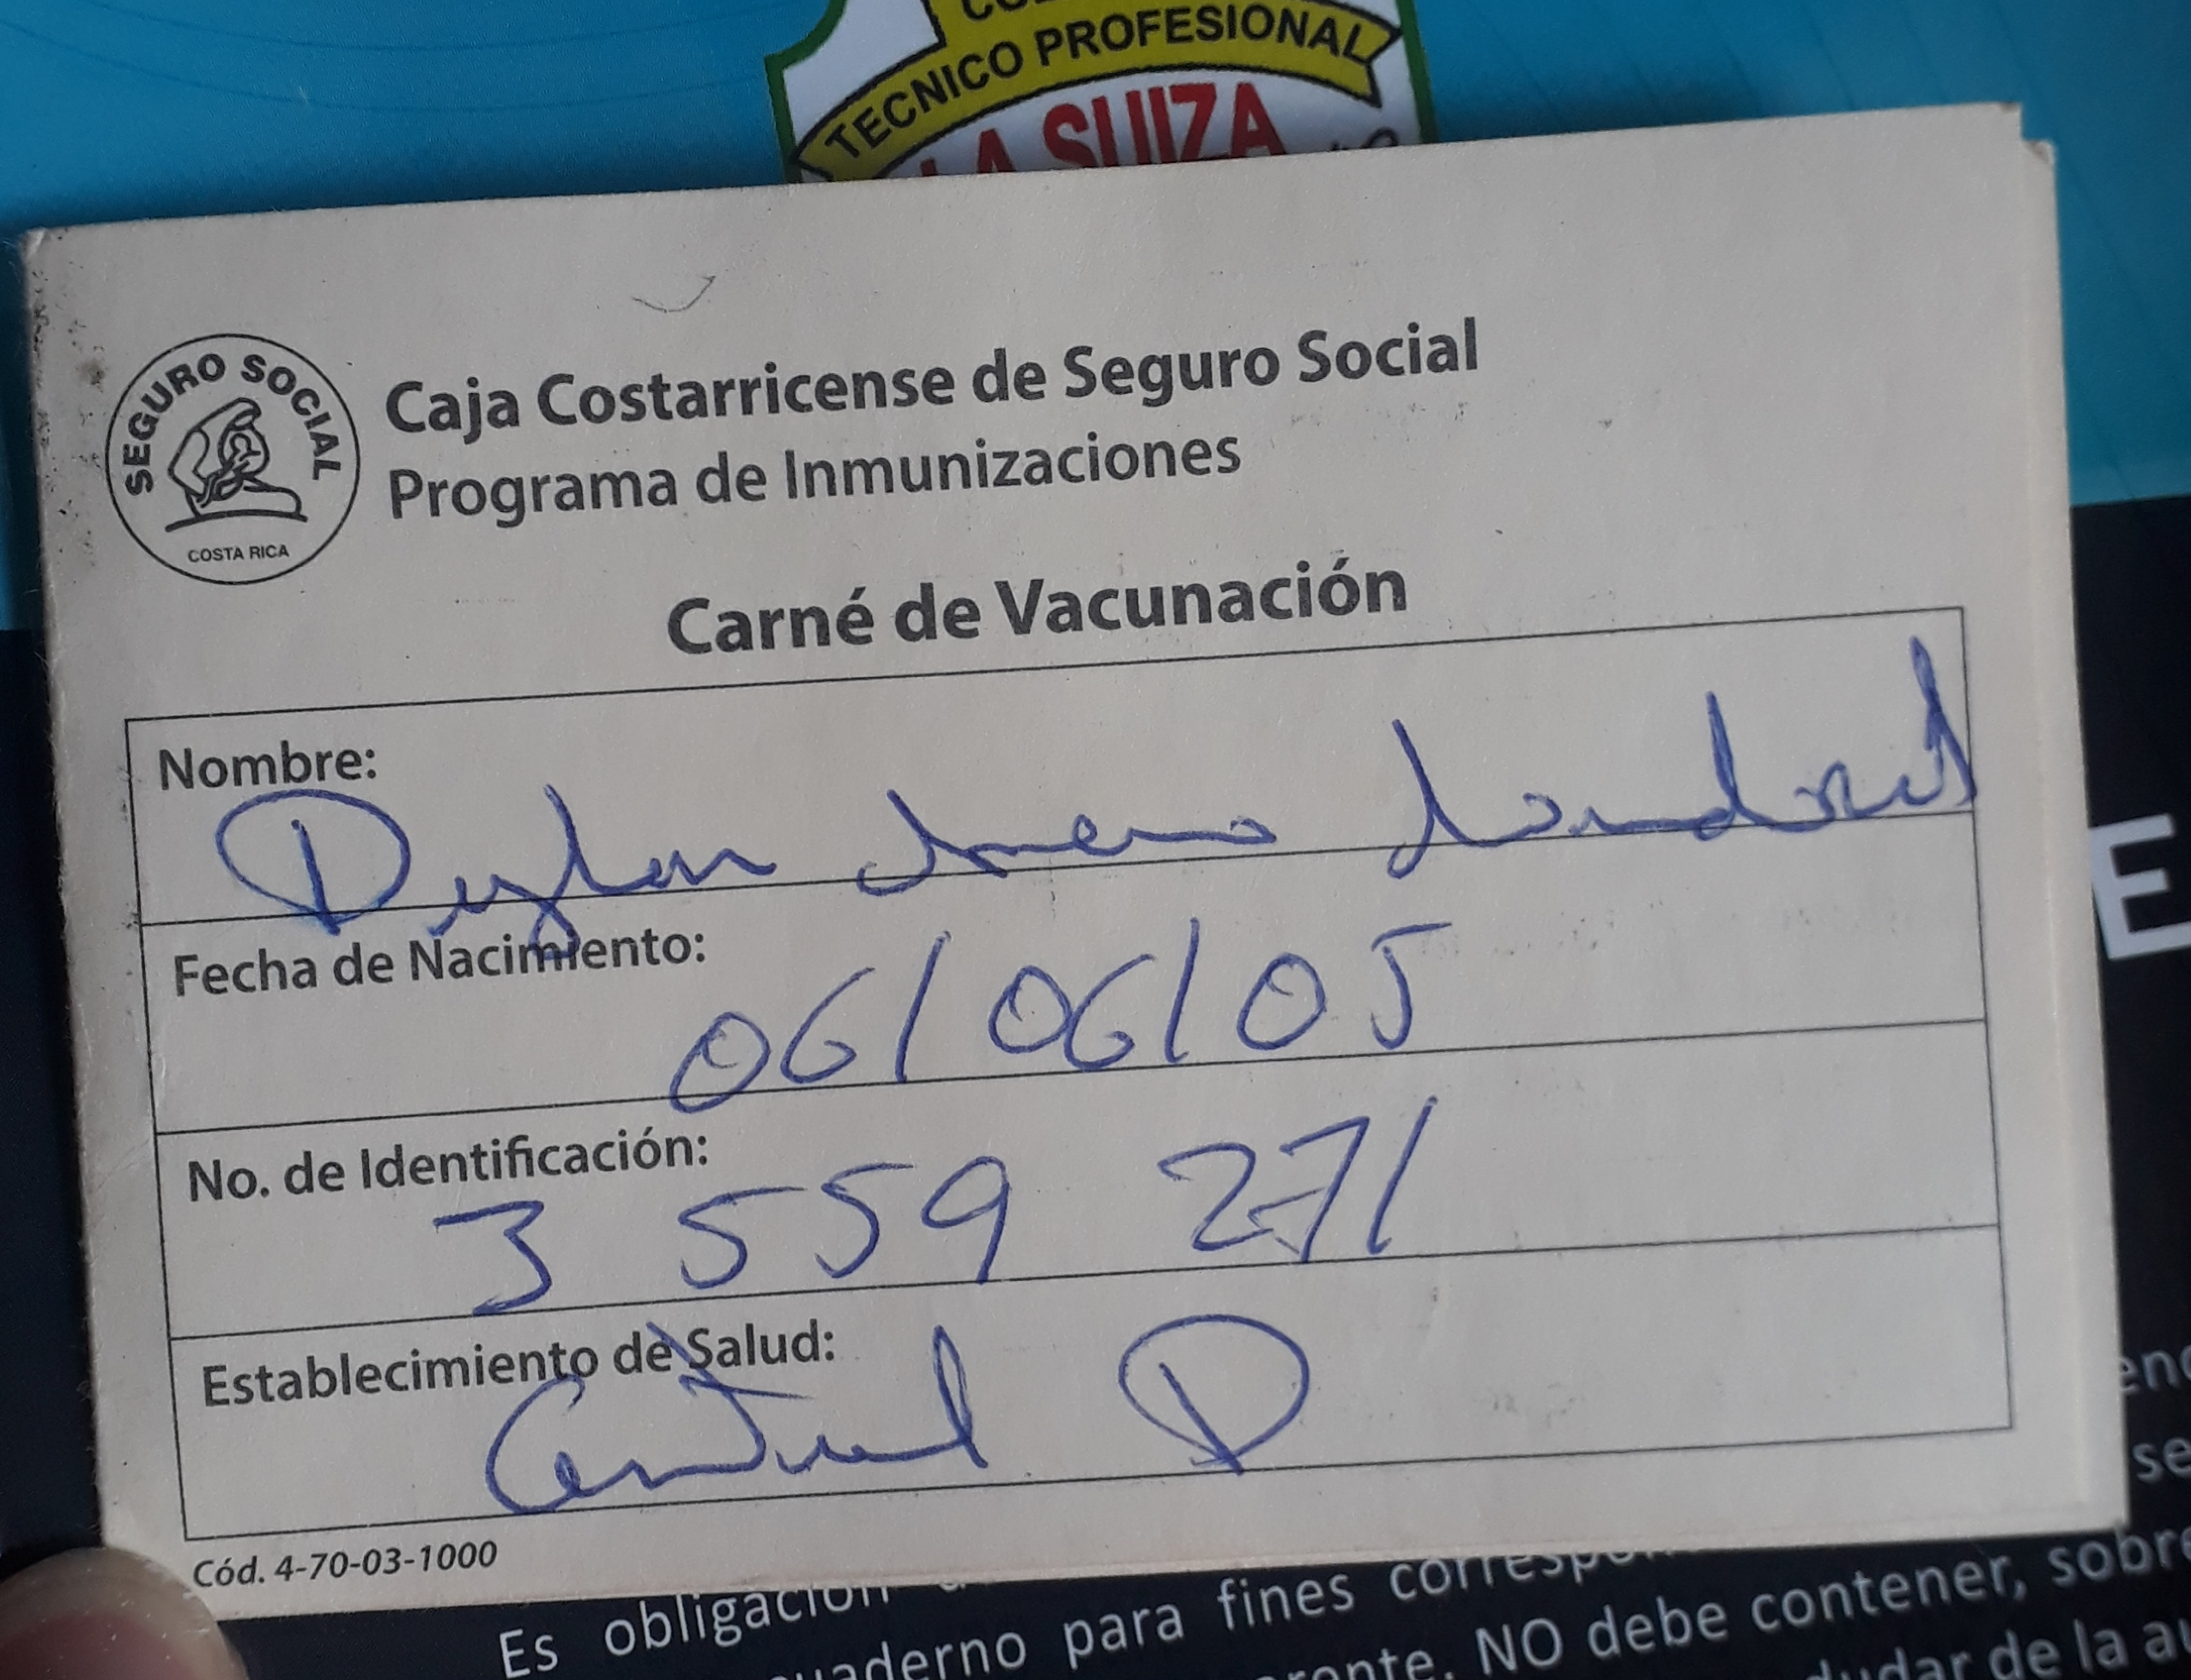 TECNICO PROFESIONAL
LA SUIZA
SEGURO SOCIAL
COSTA RICA
Caja Costarricense de Seguro Social
Programa de Inmunizaciones
Carné de Vacunación
Nombre:
Dylan
Fecha de Nacimiento:
06/06/05
No. de Identificación:
3 559 271
Establecimiento de Salud:
Central D
Cód. 4-70-03-1000
E
Es obligación
para fines
NO debe contener,
de la